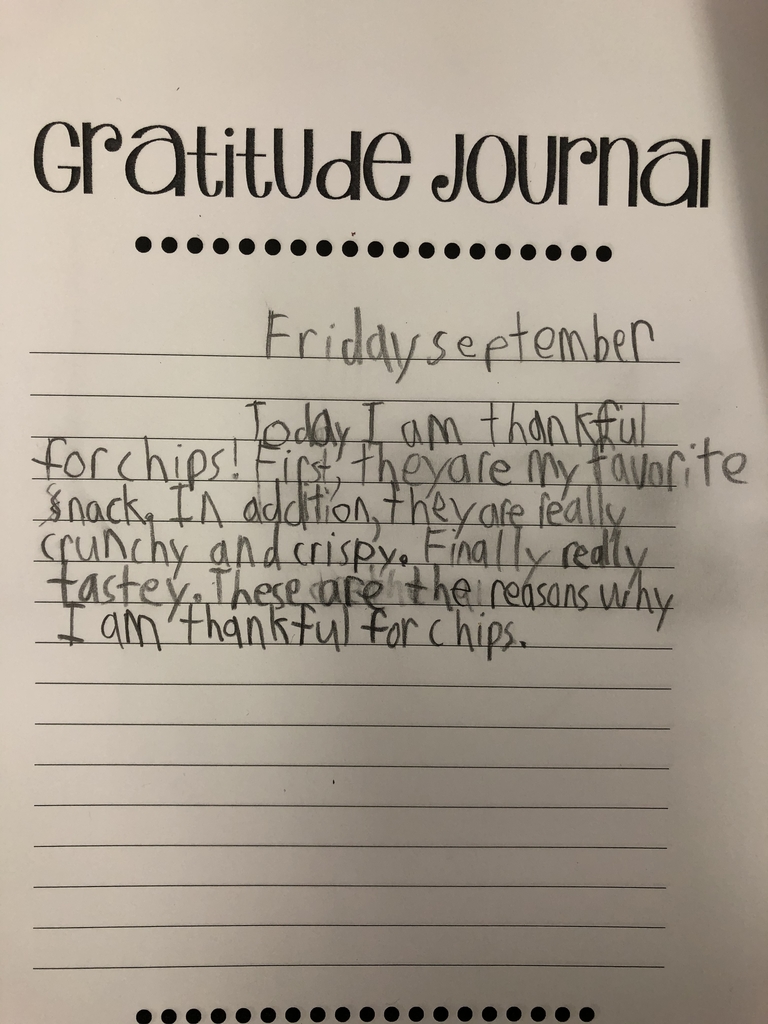 Gratitude Journal
Friday september
Today I am thankful
for chips! First, they are my favorite
snack. In addition, they are really
crunchy and crispy. Finally really
tastey. These are the reasons why
I am thankful for chips.